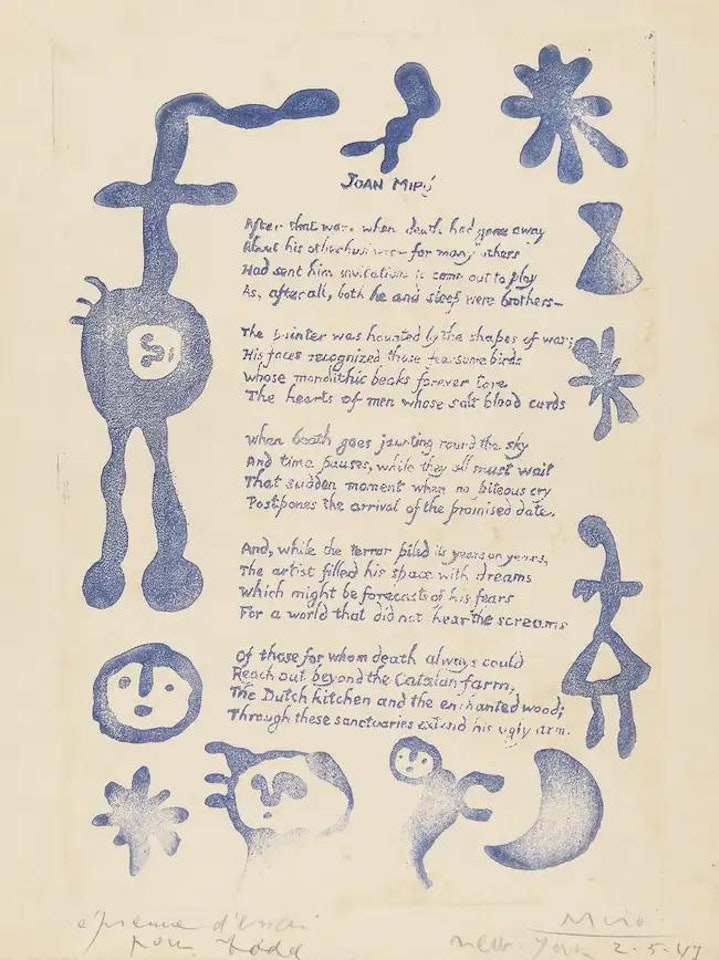 JOAN MIRÓ
After that war, when death had gone away
About his other business — for many others
Had sent him invitations to come out to play
As, after all, both he and sleep were brothers —
The painter was haunted by the shapes of war;
His faces recognized those fearsome birds
Whose monolithic beaks forever tore
The hearts of men whose salt blood curds
When death goes jaunting round the sky
And time pauses, while they all must wait
That sudden moment when no piteous cry
Postpones the arrival of the promised date.
And, while the terror piled its years on years,
The artist filled his space with dreams
Which might be forecasts of his fears
For a world that did not hear the screams
Of those for whom death always could
Reach out beyond the Catalan farm,
The Dutch kitchen and the enchanted wood;
Through these sanctuaries extend his ugly arm.
épreuve d'essai
pour Todd
Miró
New York 2-5-47